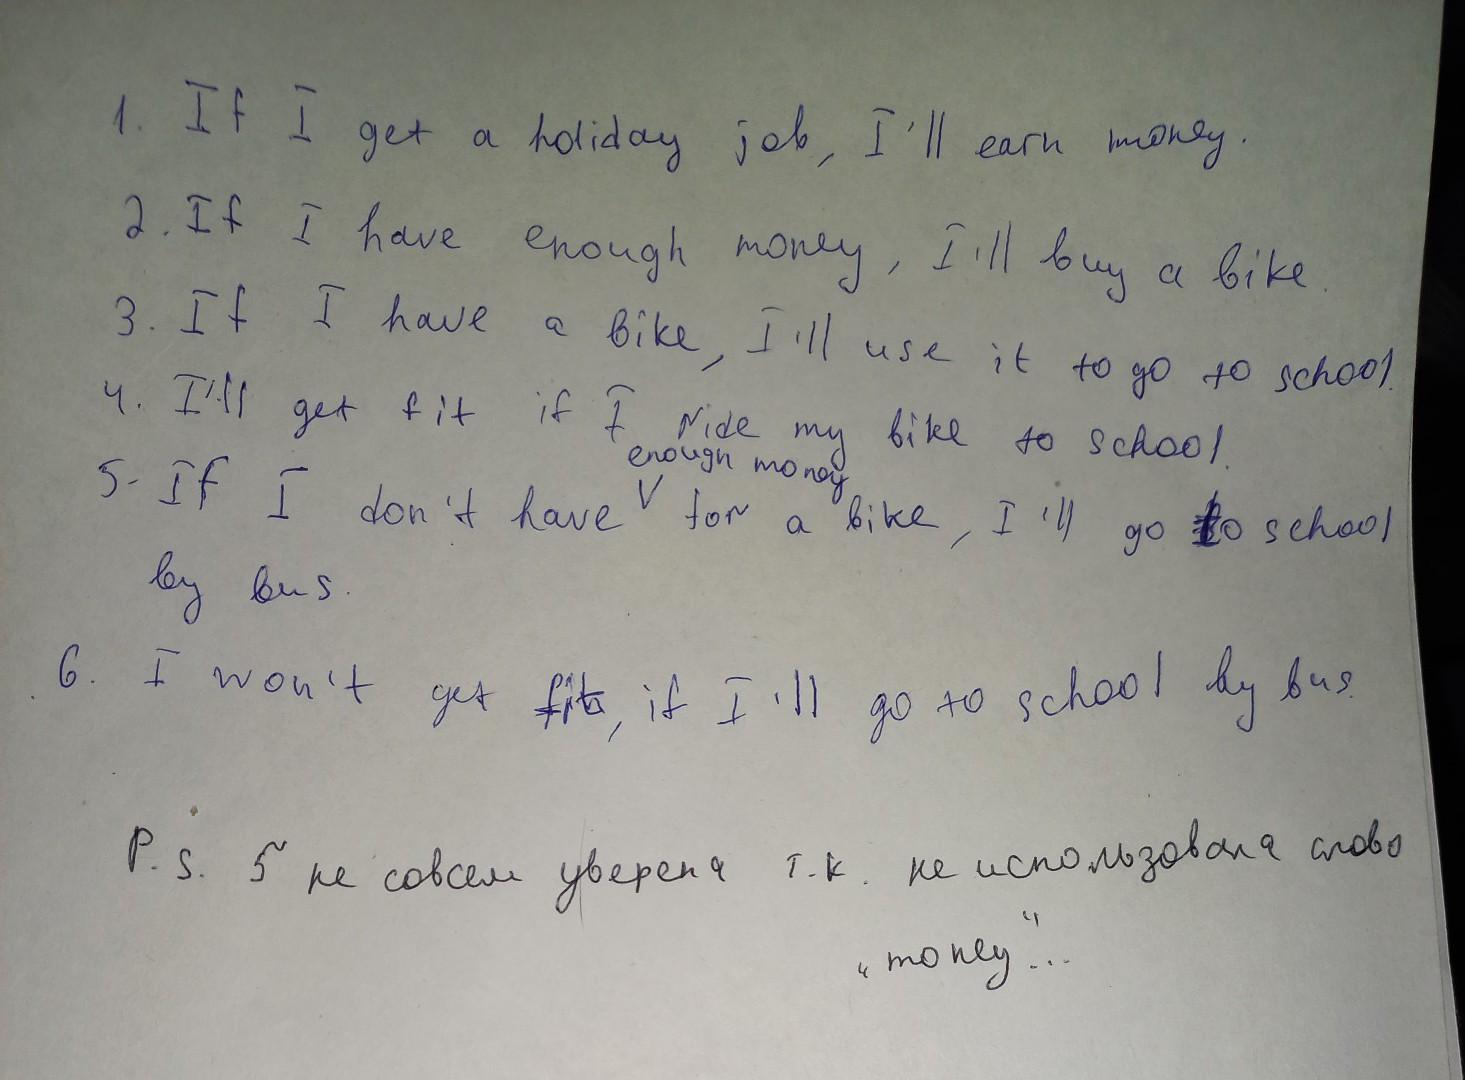 1. If I get a holiday job, I'll earn money.
2. If I have enough money, I'll buy a bike.
3. If I have a bike, I'll use it to go to school.
4. I'll get fit if I ride my bike to school.
enough money
5. If I don't have V for a bike, I'll go to school
by bus.
6. I won't get fit, if I'll go to school by bus.
P.S. 5 не совсем уверена т.к. не использовала слово
„money"...